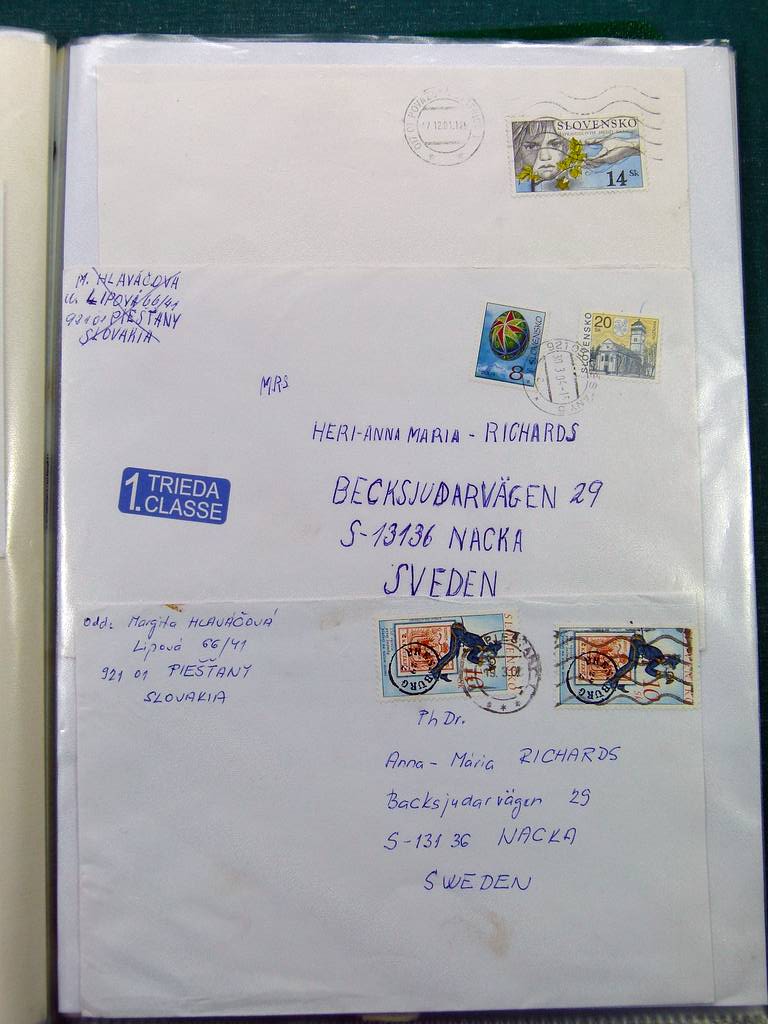 SLOVENSKO
14 Sk
M. HLAVÁČOVÁ
u. LIPOVÁ 66/41
921 01 PIEŠŤANY
SLOVAKIA
8
SLOVENSKO
20
SLOVENSKO
MRS
HERI-ANNA MARIA - RICHARDS
1. TRIEDA
CLASSE
BECKSJUDARVÄGEN 29
S-13136 NACKA
SVEDEN
Odd: Margita HLAVÁČOVÁ
Lipová 66/41
921 01 PIEŠŤANY
SLOVAKIA
SLOVENSKO
PIEŠŤANY
10
PhDr.
Anna-Mária RICHARDS
Backsjudarvägen 29
S-131 36 NACKA
SWEDEN